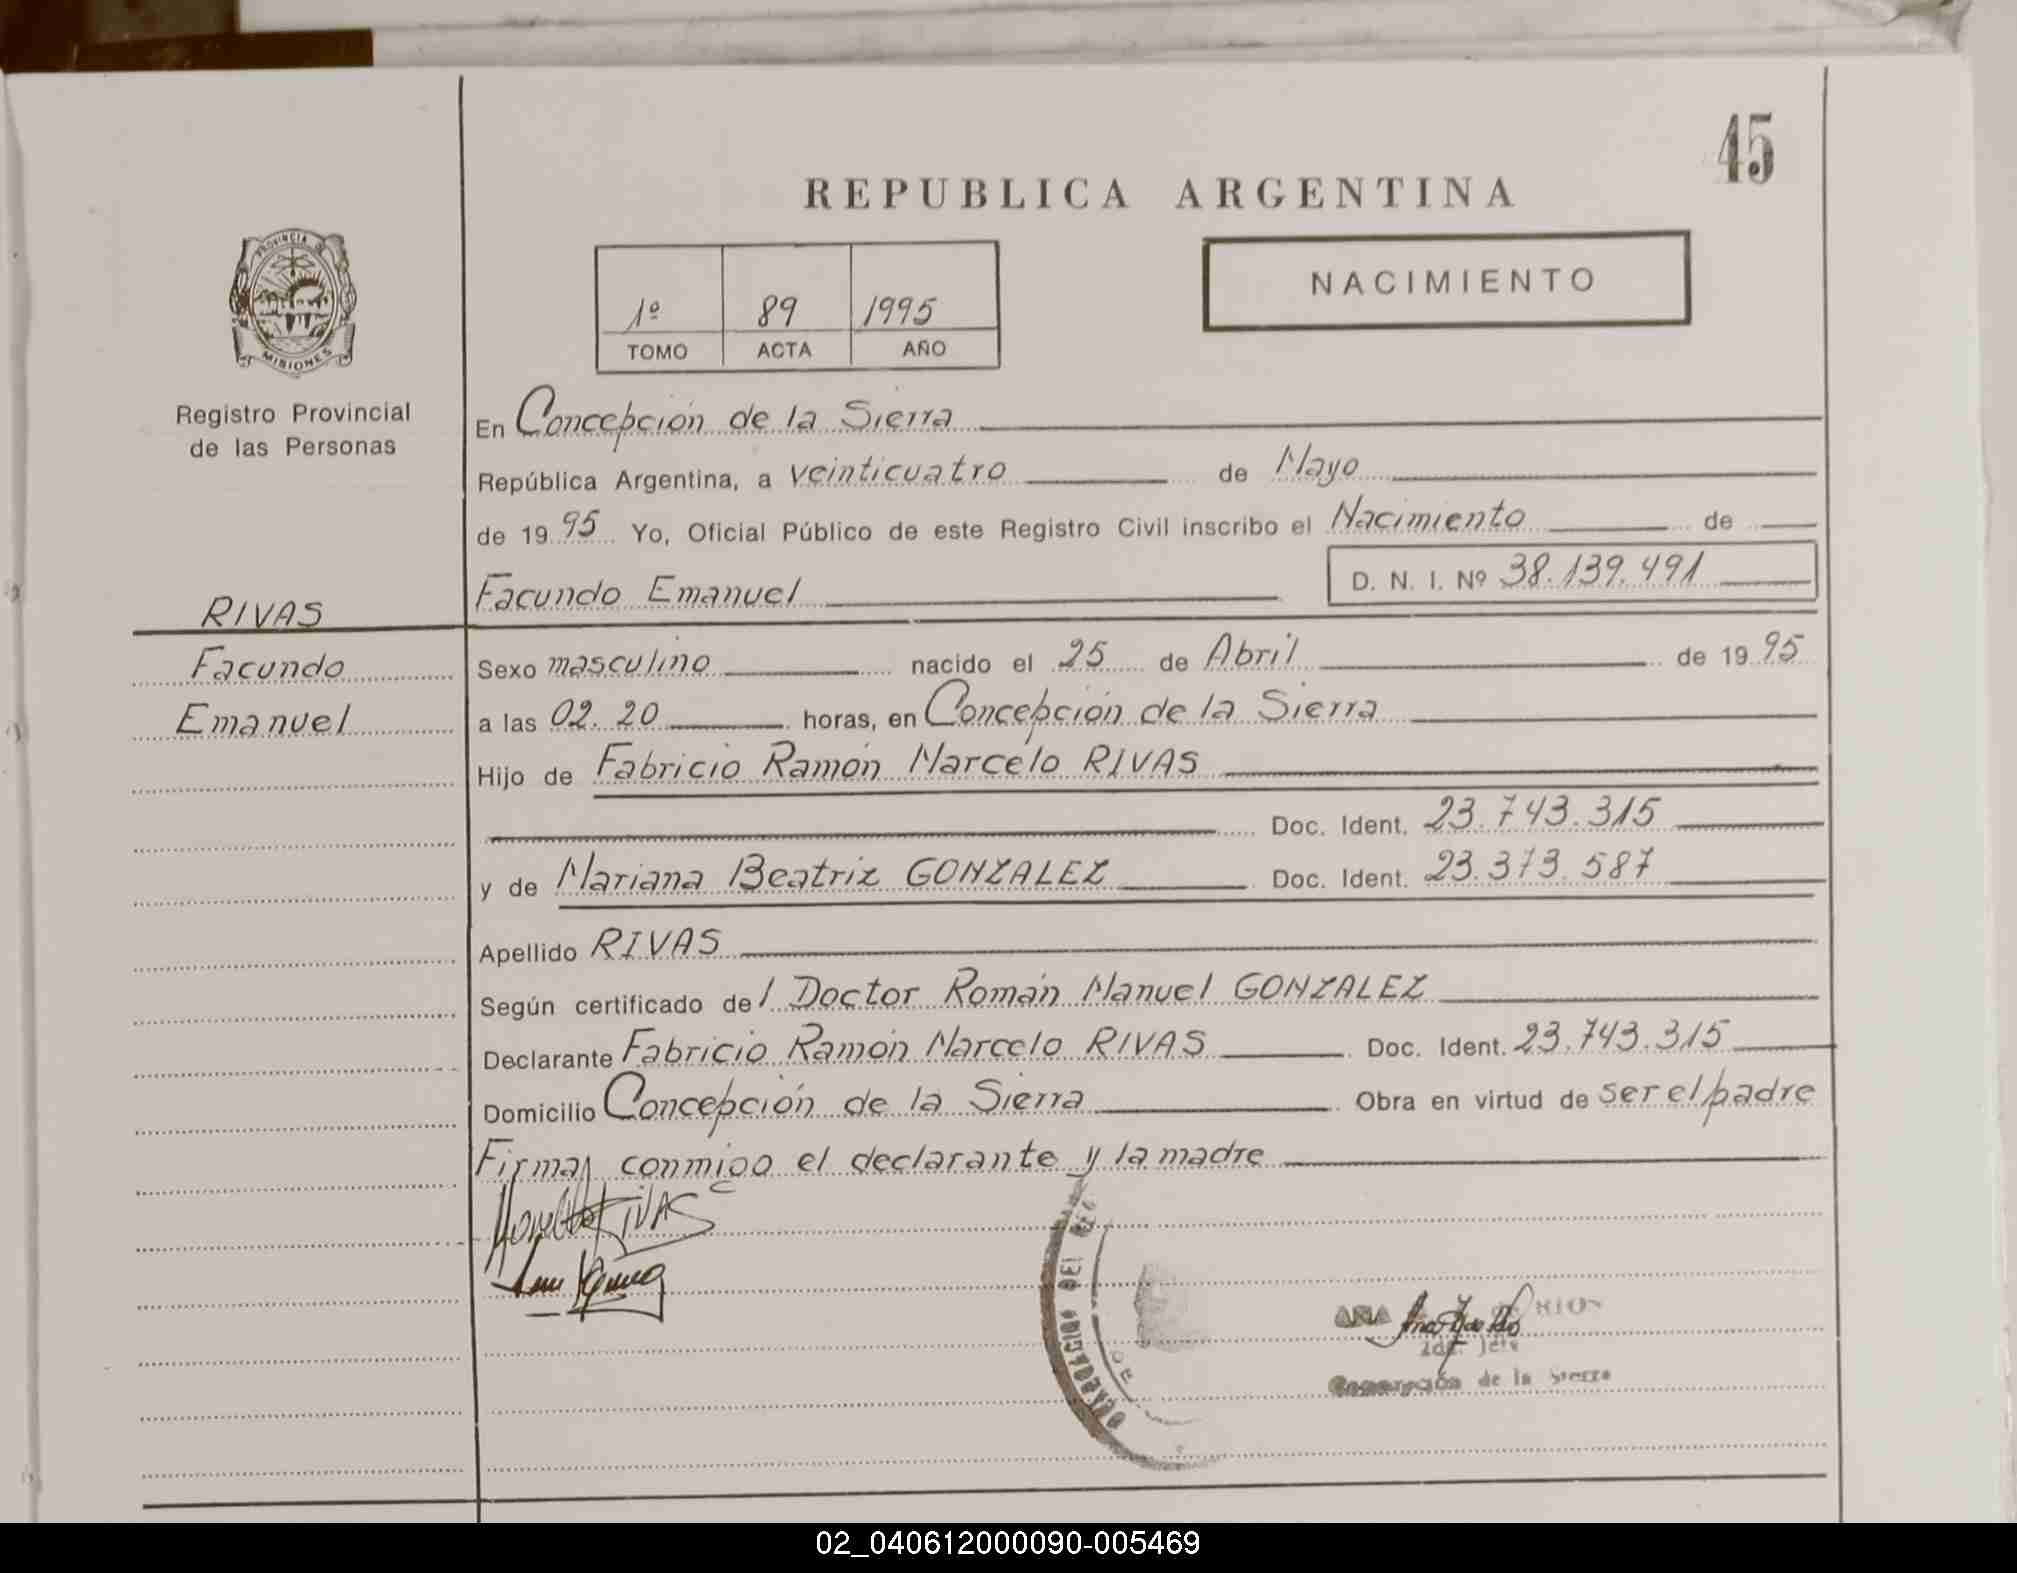 45
REPUBLICA ARGENTINA
PROVINCIA DE
MISIONES
Registro Provincial
de las Personas
1º 89 1995
TOMO ACTA AÑO
NACIMIENTO
En Concepción de la Sierra
República Argentina, a veinticuatro de Mayo
de 1995 Yo, Oficial Público de este Registro Civil inscribo el Nacimiento de
Facundo Emanuel D. N. I. Nº 38.139.491
RIVAS
Facundo
Emanuel
Sexo masculino nacido el 25 de Abril de 1995
a las 02.20 horas, en Concepción de la Sierra
Hijo de Fabricio Ramón Marcelo RIVAS
Doc. Ident. 23.743.315
y de Mariana Beatriz GONZALEZ Doc. Ident. 23.373.587
Apellido RIVAS
Según certificado del Doctor Román Manuel GONZALEZ
Declarante Fabricio Ramón Marcelo RIVAS Doc. Ident. 23.743.315
Domicilio Concepción de la Sierra Obra en virtud de ser el padre
Firman conmigo el declarante y la madre
RIVAS
DEL REG
DE
ANA
Jefe
Concepción de la Sierra
02_040612000090-005469